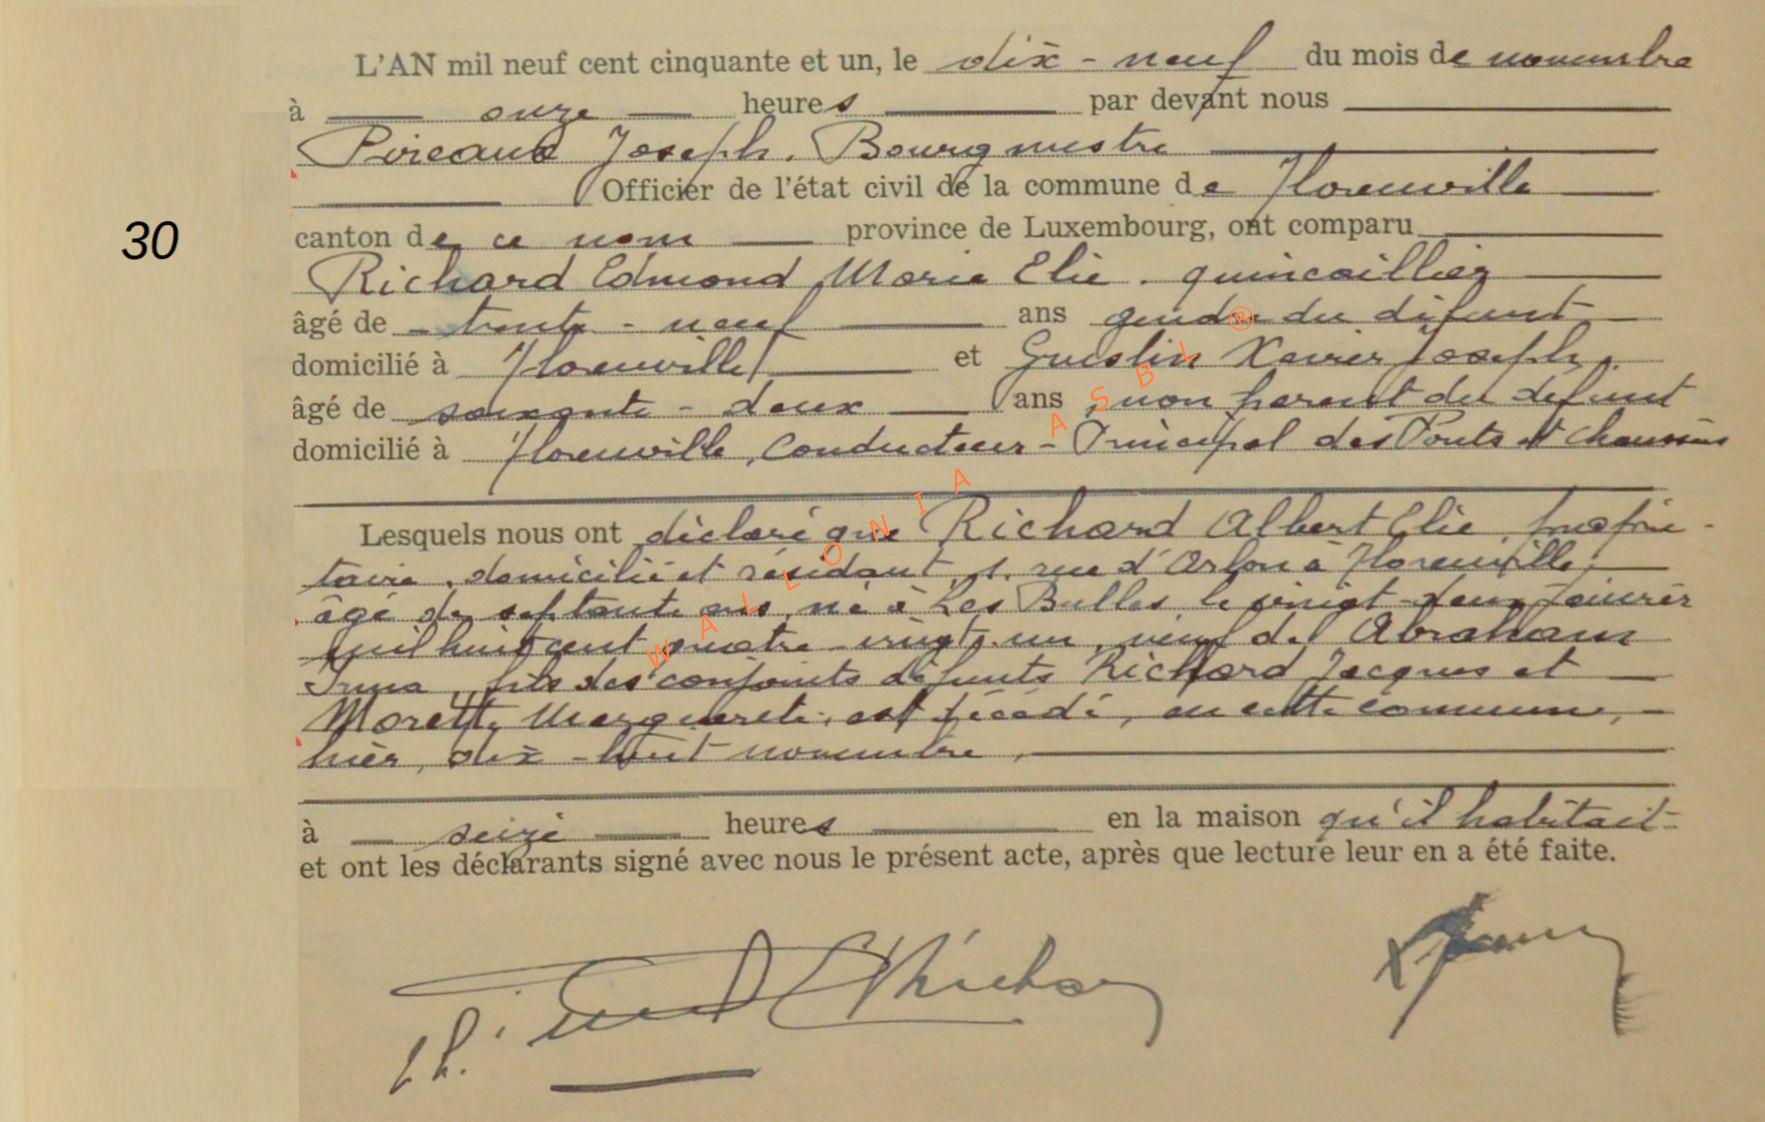 L'AN mil neuf cent cinquante et un, le dix-neuf du mois de novembre
à onze heures par devant nous
Poireaux Joseph, Bourgmestre
Officier de l'état civil de la commune de Florenville
30
canton de ce nom province de Luxembourg, ont comparu
Richard Edmond Marie Elie, quincaillier
âgé de trente-neuf ans gendre du défunt
domicilié à Florenville et Guislin Xavier Joseph,
âgé de soixante-deux ans, non parent du défunt
domicilié à Florenville, Conducteur-Principal des Ponts et Chaussées
Lesquels nous ont déclaré que Richard Albert Elie, proprié-
taire, domicilié et résidant, 1, rue d'Arlon à Florenville,
âgé de septante ans, né à Les Bulles le vingt-deux février
mil huit cent quatre-vingt-un, veuf de Abraham
Irma, fils des conjoints défunts Richard Jacques et
Morette Marguerite, est décédé, en cette commune,
hier, dix-huit novembre,
à seize heures en la maison qu'il habitait
et ont les déclarants signé avec nous le présent acte, après que lecture leur en a été faite.
WALLONIA ASBL ®